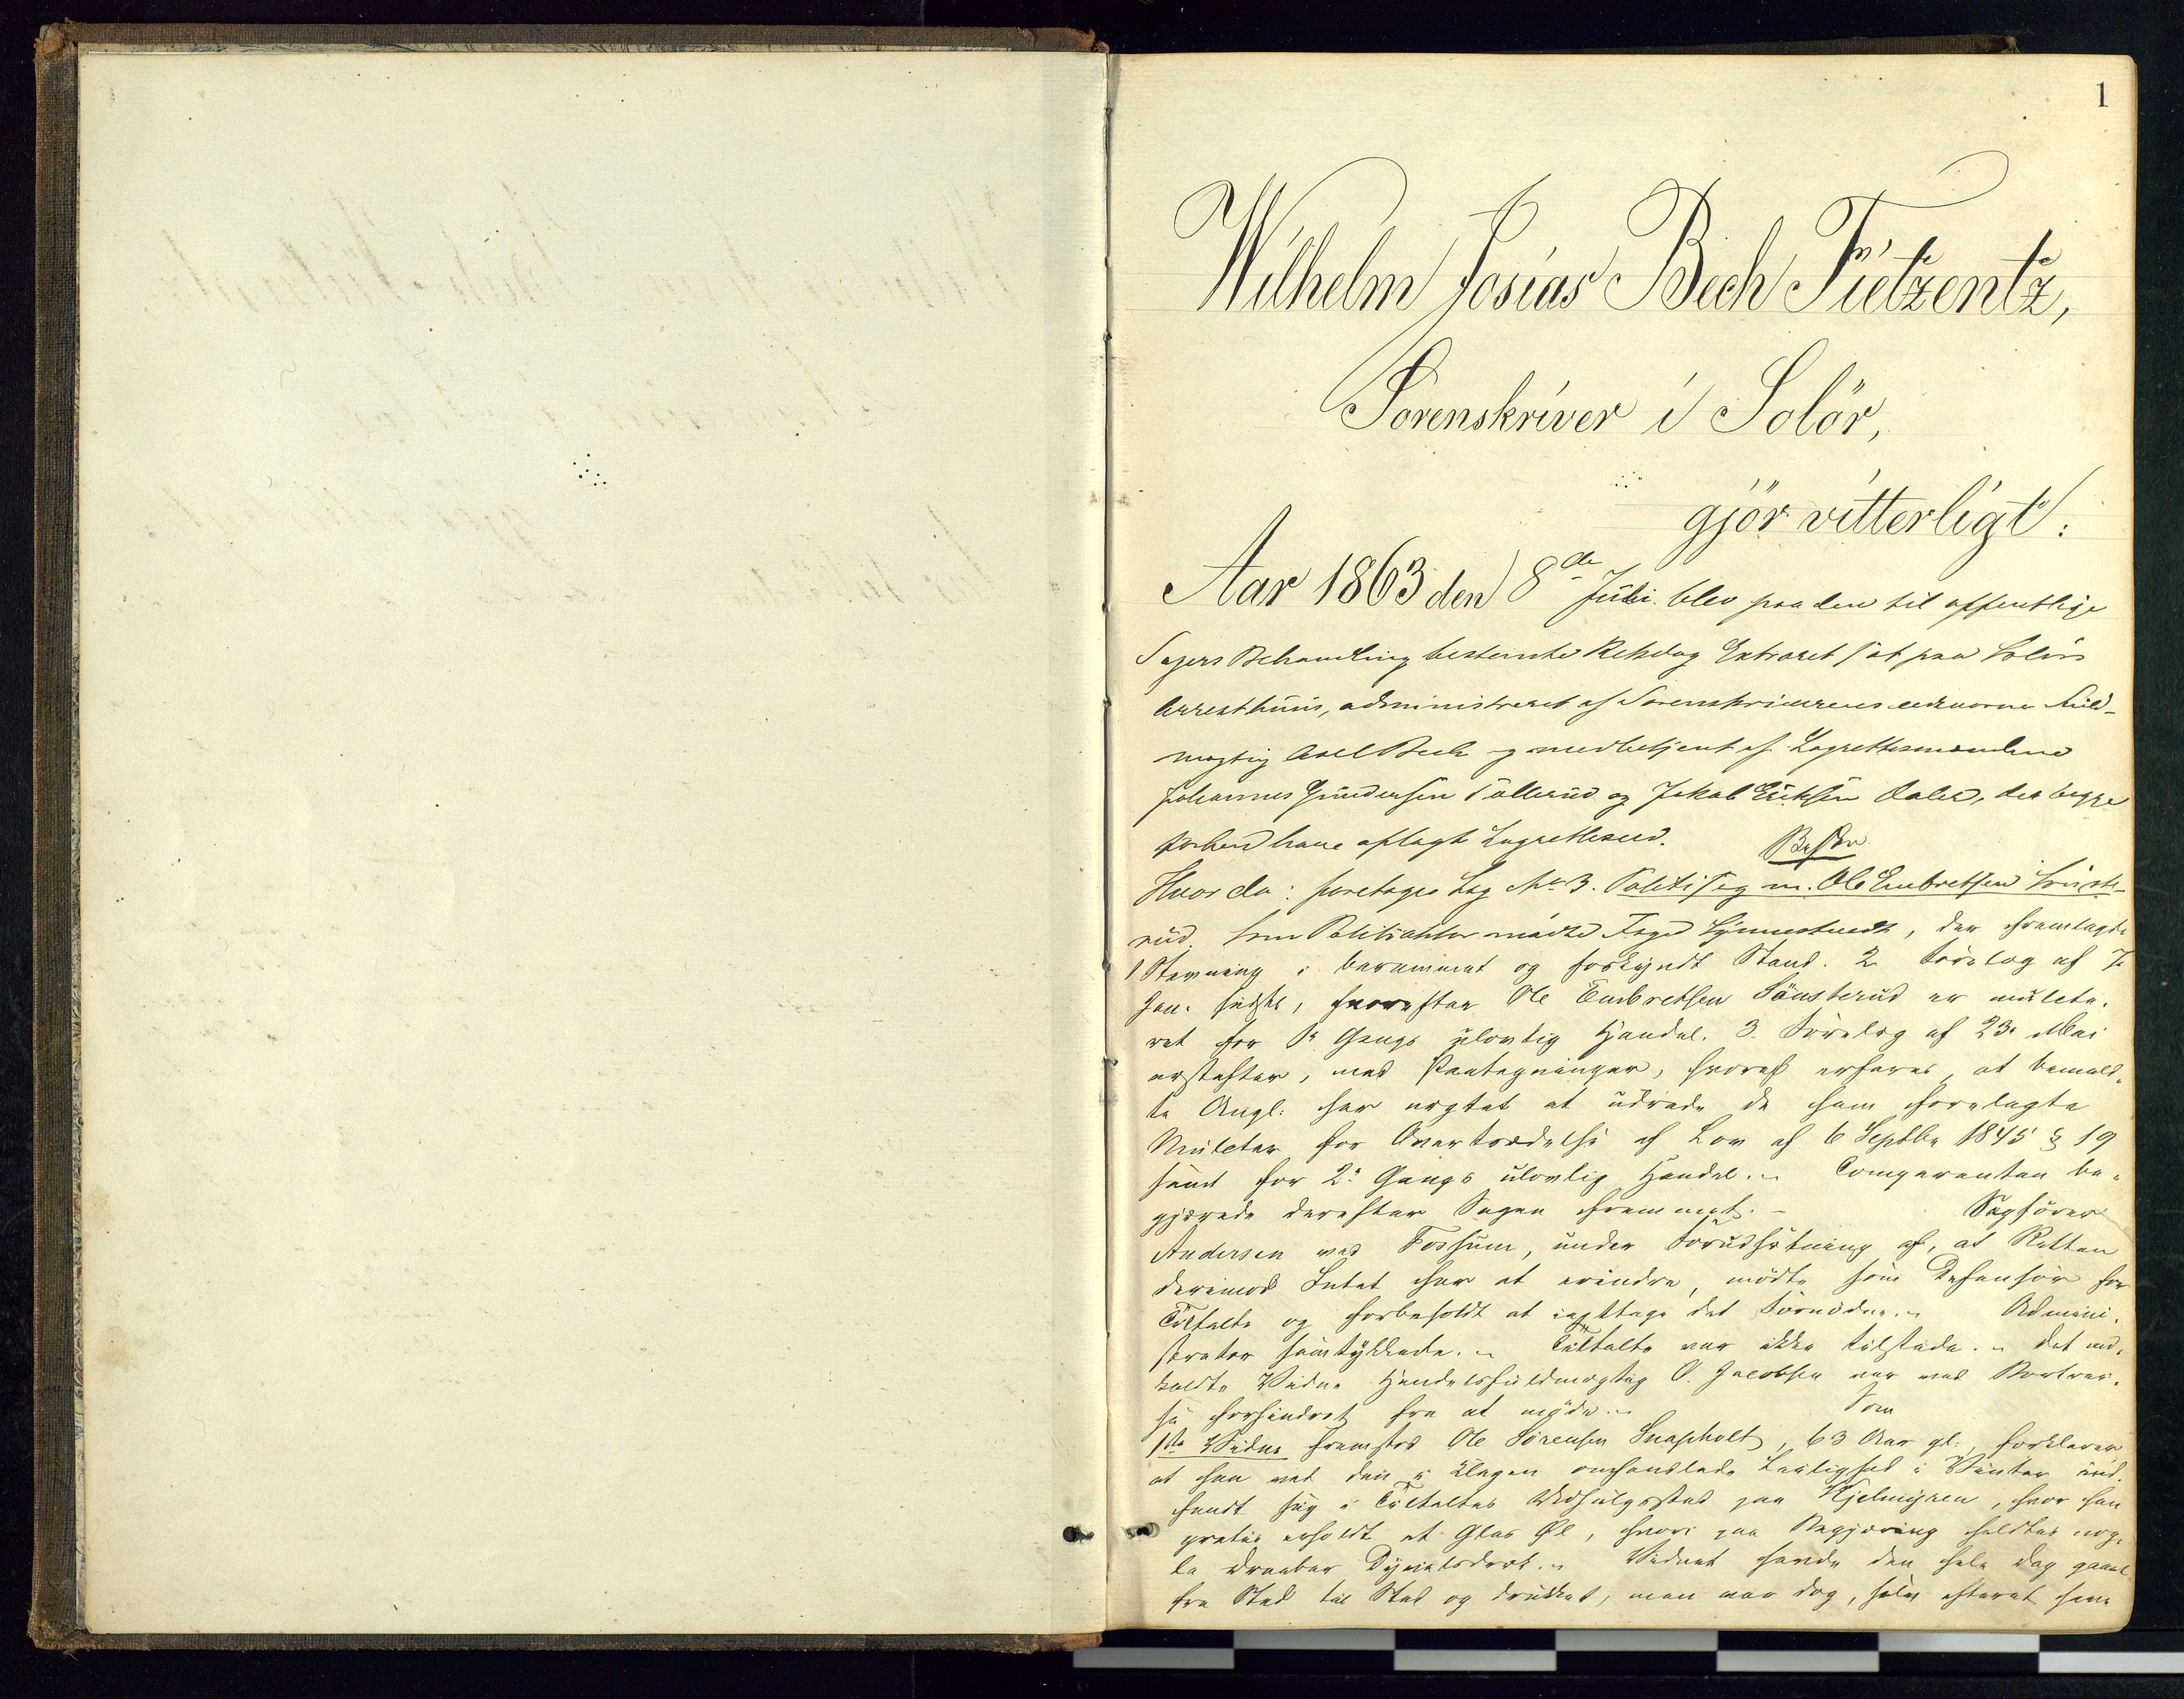 1
Wilhelm Josias Bech Tietzentz,
Sorenskriver i Solör,
gjör vitterligt:
Aar 1863 den 8de Juli blev paa den til offentlige
Sagers Behandling bestemte Retsdag Extraret sat paa Solörs
Arresthuus, administreret af Sorenskriverens edsvorne Fuld-
mægtig Axel Bech og medbetjent af Lagrettesmændene
Johannes Gundersen Tollerud og Jakob Eriksen Kaler, der begge
forhen have aflagt Lagrettesed.
Hvor da: foretoges Sag No 3. Politisag m. Ole Embretsen Sönste-
rud. Som Politiaktor mödte Foged Lÿnnestvedt, der fremlagde
1 Stevning i berammet og forkyndt Stand. 2 Forelæg af 7
Jan. sidstl, hvorefter Ole Embretsen Sönsterud er mulcte-
ret for 1e Gangs ulovlig Handel. 3. Forelæg af 23e Mai
næstefter, med Paategninger, hvoraf erfares, at bemeld-
te Angl. har nægtet at udrede de ham forelagte
Mulcter for Overtrædelse af Lov af 6 Septbr 1845 § 19
samt for 2e Gangs ulovlig Handel. - Comparenten be-
gjærede derefter Sagen fremmet. - Sagförer
Andersen ved Fossum, under Forudsætning af, at Retten
derimod Intet har at erindre, mödte som Defensor for
Tiltalte og forbeholdt at iagttage det Fornödne. - Admini-
strator samtykkede. - Tiltalte var ikke tilstede. - Det ind-
kaldte Vidne Handelsfuldmægtig O. Jacobsen var ved Bortrei-
se forhindret fra at möde. - Som
1ste Vidne fremstod Ole Sörensen Snapholt, 63 Aar gl., forklarer
at han ved den i Klagen omhandlede Leilighed i Vinter ind-
fandt sig i Tiltaltes Udsalgssted paa Kjelmyren, hvor han
gratis erholdt et Glas Øl, hvori paa Begjæring heldtes nog-
le Draaber . - Vidnet havde den hele Dag gaaet
fra Sted til Sted og drukket, men var dog, selv efterat have